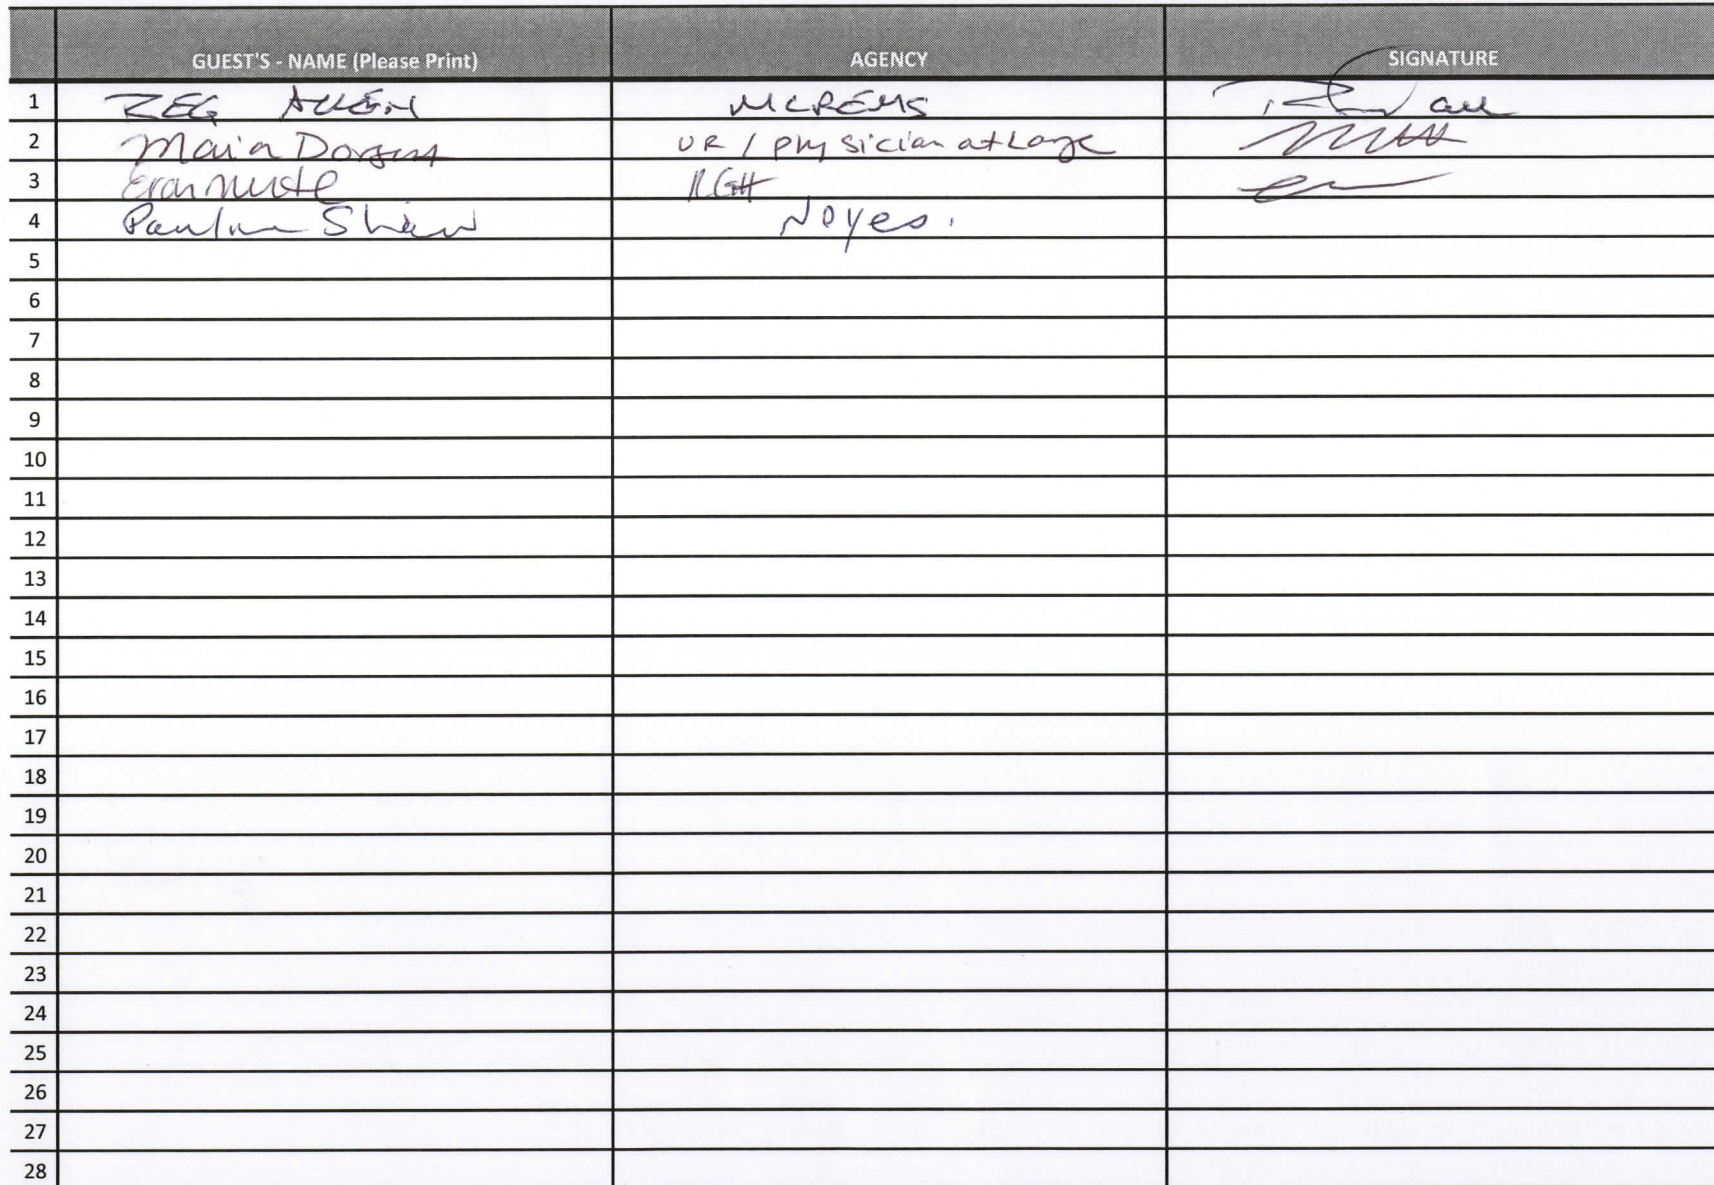 GUEST'S - NAME (Please Print) AGENCY SIGNATURE
1 REG ALLEN MCREMS
2 Maia Dorsett UR / Physician at Large
3 RGH
4 Pauline Shaw Noyes.
5
6
7
8
9
10
11
12
13
14
15
16
17
18
19
20
21
22
23
24
25
26
27
28